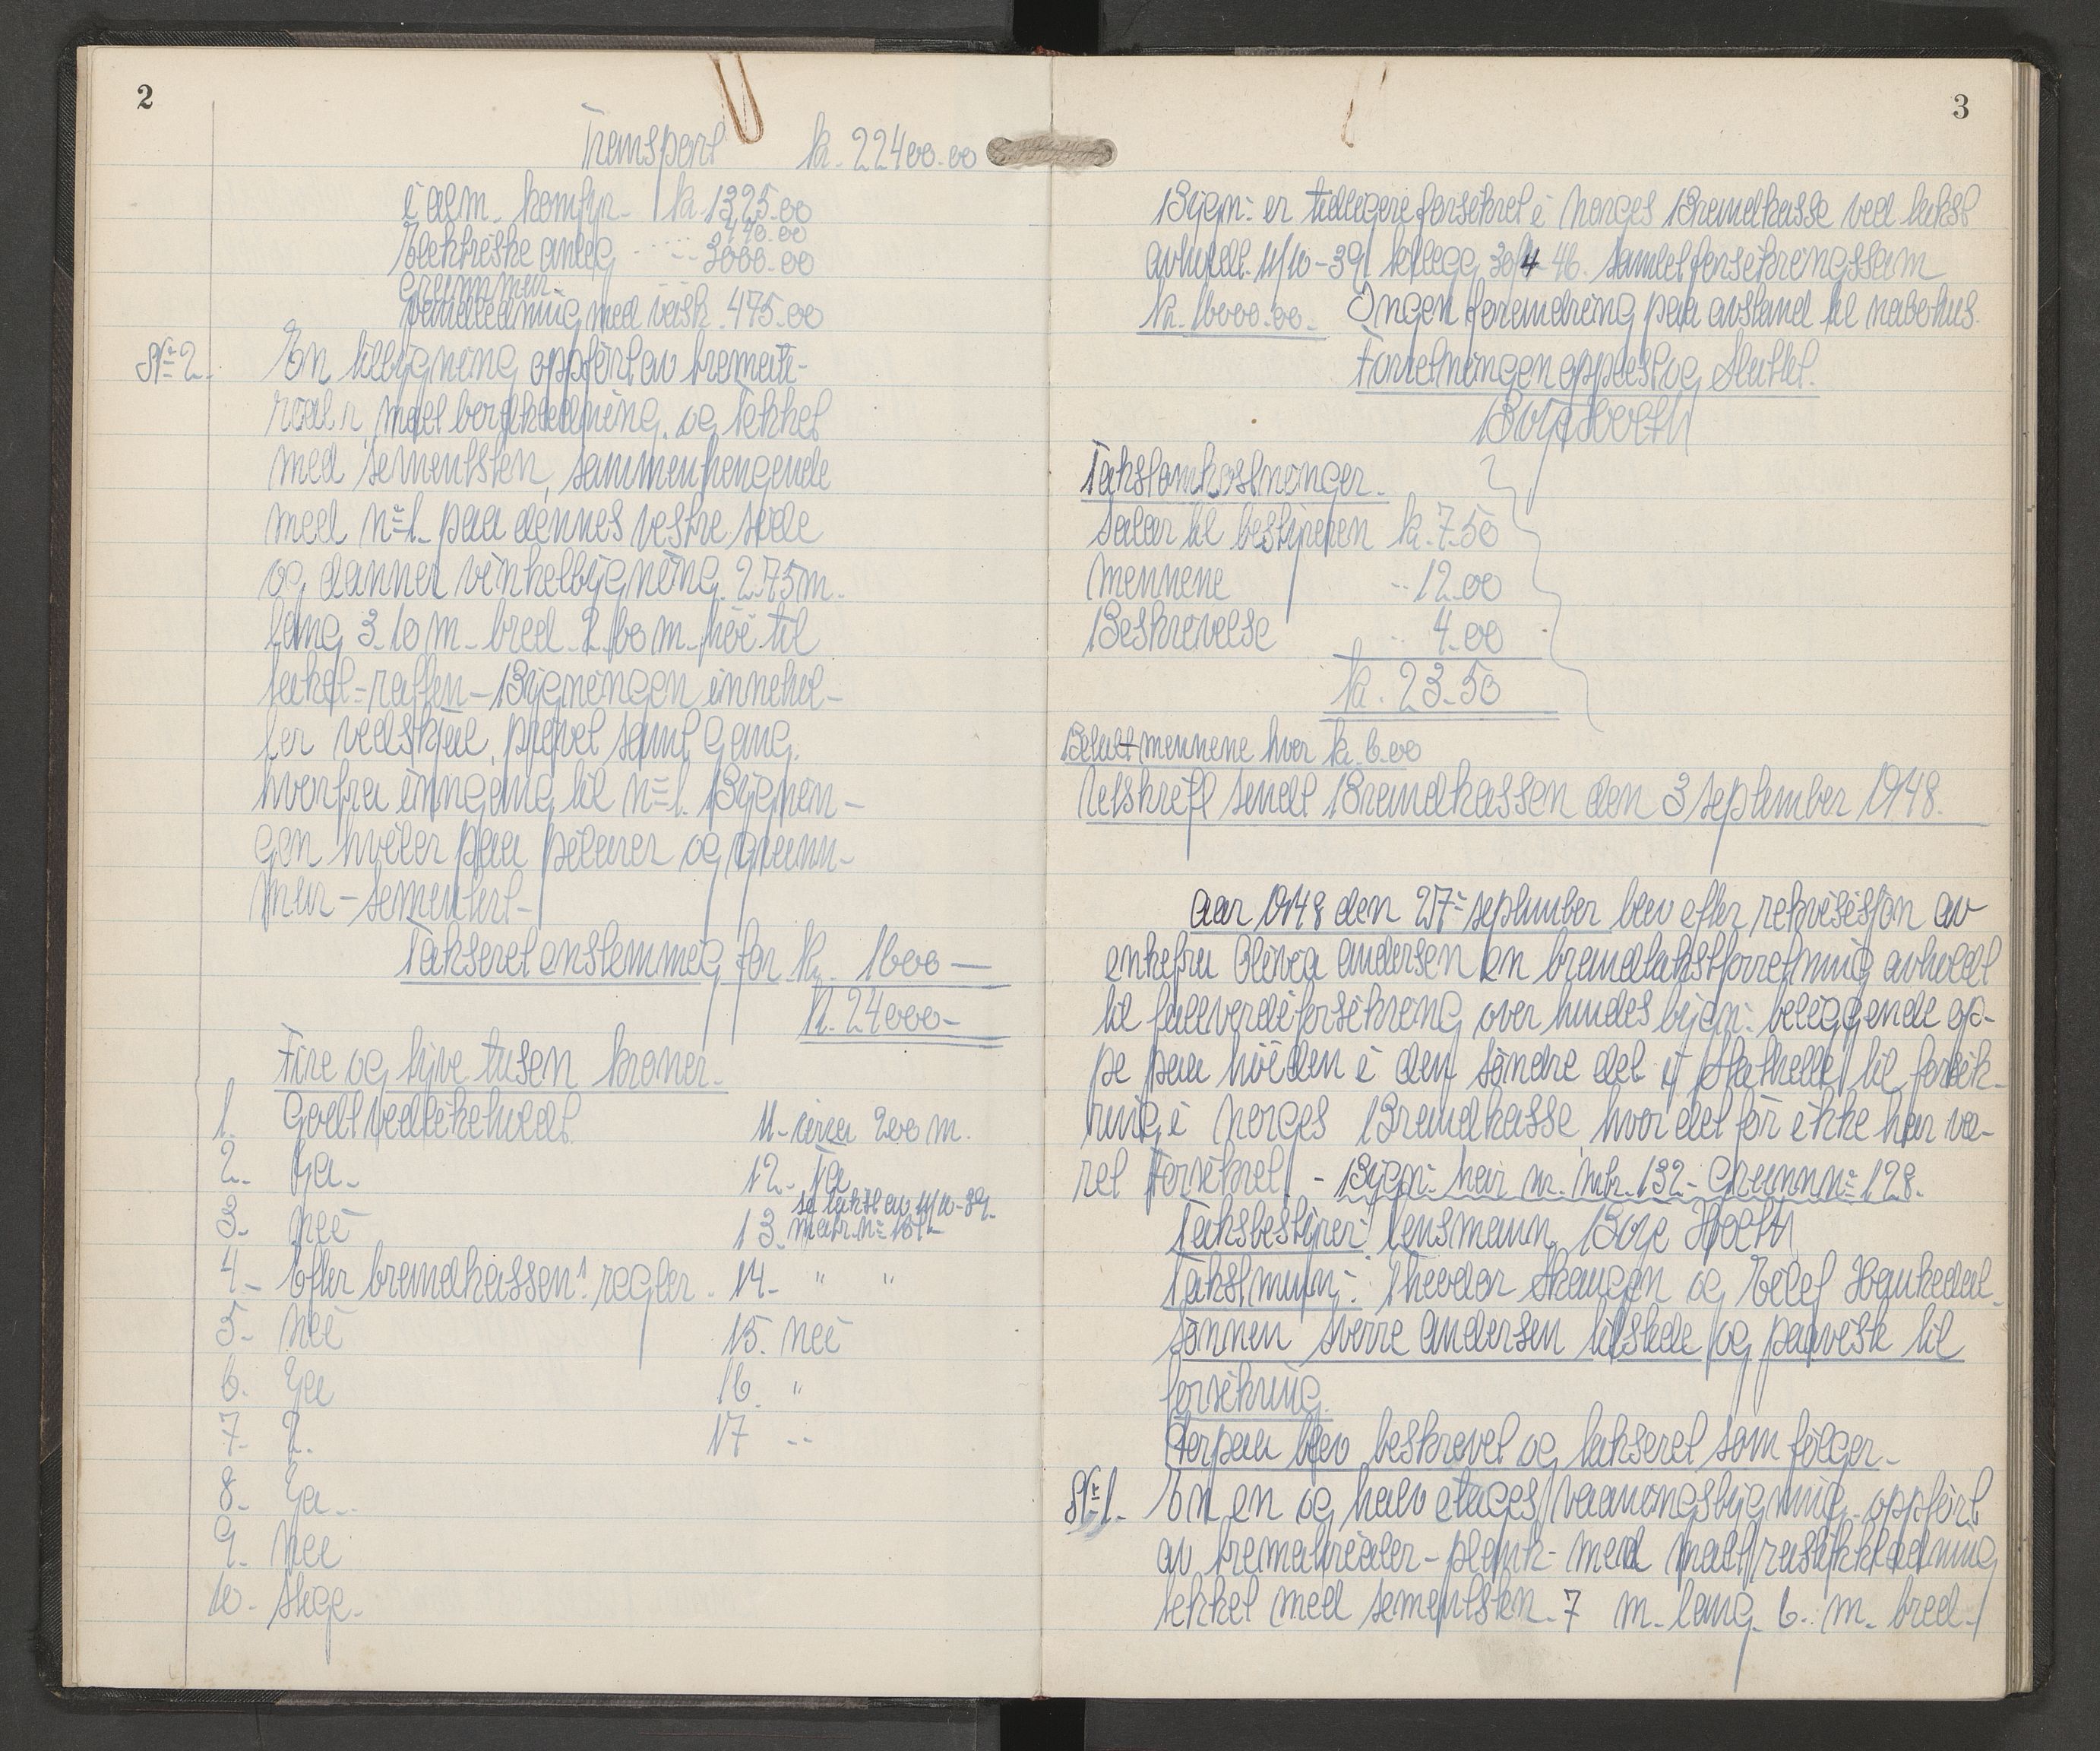 2
Transport kr. 22400.00
i alm. komfyr. kr. 1325.00
440.00
Elektriske anleg 3000.00
Grunnmur
vandledning med vask. 475.00
No 2. En tilbygning oppført av tremate-
rialer, malt bordkledning og tekket
med sementsten, sammenhengende
med no 1. paa dennes vestre side
og danner vinkelbygning. 2.75 m.
lang 3.10 m. bred. 2.60 m. høi til
takraften - Bygningen innehol-
ler vedskjul, privet samt gang.
hvorfra inngang til no 1. Bygnin-
gen hviler paa pilarer og grunn-
mur - sementert -
Takseret enstemmig for kr. 1600 -
kr. 24000 -
Fire og tyve tusen kroner.
1. Godt vedlikeholdt. 11 - circa 200 m.
2. Ja - 12 - Ja
3. nei 13. se takst av 11/10-39. matr. no
4 - Efter brandkassens regler. 14 - " "
5 - nei 15. nei
6. Ja 16. "
7. 2. 17 --
8 - Ja --
9. nei
10 - stige -
3
Bygn: er tidligere forsikret i Norges Brandkasse ved takst
avholdt. 11/10-39 tillegg 30/4-46. samlet forsikringssum
kr. 16000.00. Ingen forandring paa avstand til nabohus.
Forretningen opplest og sluttet.
Borge Hoeth
Takstomkostninger.
Salar til bestyreren kr. 7.50
Mennene -- 12.00
Beskrivelse -- 4.00
kr. 23.50
Betalt mennene hver kr. 6.00
Utskrift sendt Brandkassen den 3 september 1948.
Aar 1948 den 27: september blev efter rekvisisjon av
enkefru Olivia Andersen en brandtakstforretning avholdt
til fullverdiforsikring over hendes bygn: beliggende op-
pe paa høiden i den søndre del af Stathelle til forsik-
ring i Norges Brandkasse, hvor det før ikke har væ-
ret forsikret. - Bygn: har br. nr. 132 - Grunn no 128.
Takstbestyrer: lensmann Borge Hoeth
Takstmenn: Theodor Skaugen og Eilef Haukedal.
sønnen Sverre Andersen tilstede og paaviste til
forsikring.
Derpaa blev beskrevet og takseret som følger.
No 1. En en og halv etages vaaningsbygning oppført
av trematrialer - plank - med malt rustikkledning
tekket med sementsten. 7 m. lang. 6. m. bred.